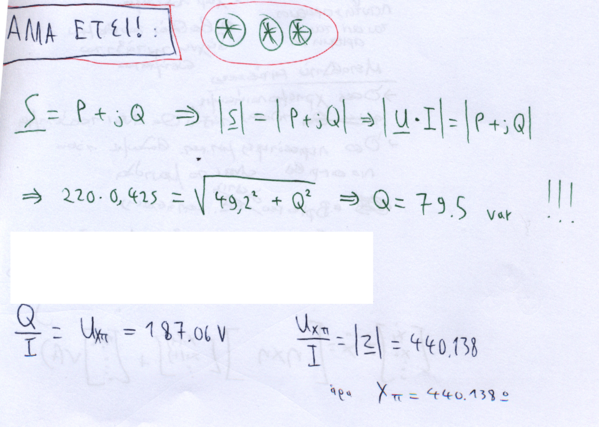 ΑΜΑ ΕΤΣΙ!: * * *
S = P + jQ ⇒ |S| = |P + jQ| ⇒ |U · I| = |P + jQ|
⇒ 220 · 0,425 = √(49,2² + Q²) ⇒ Q = 79.5 var !!!
Q/I = Uxπ = 187.06 V
Uxπ/I = |Z| = 440.138
άρα Xπ = 440.138 Ω